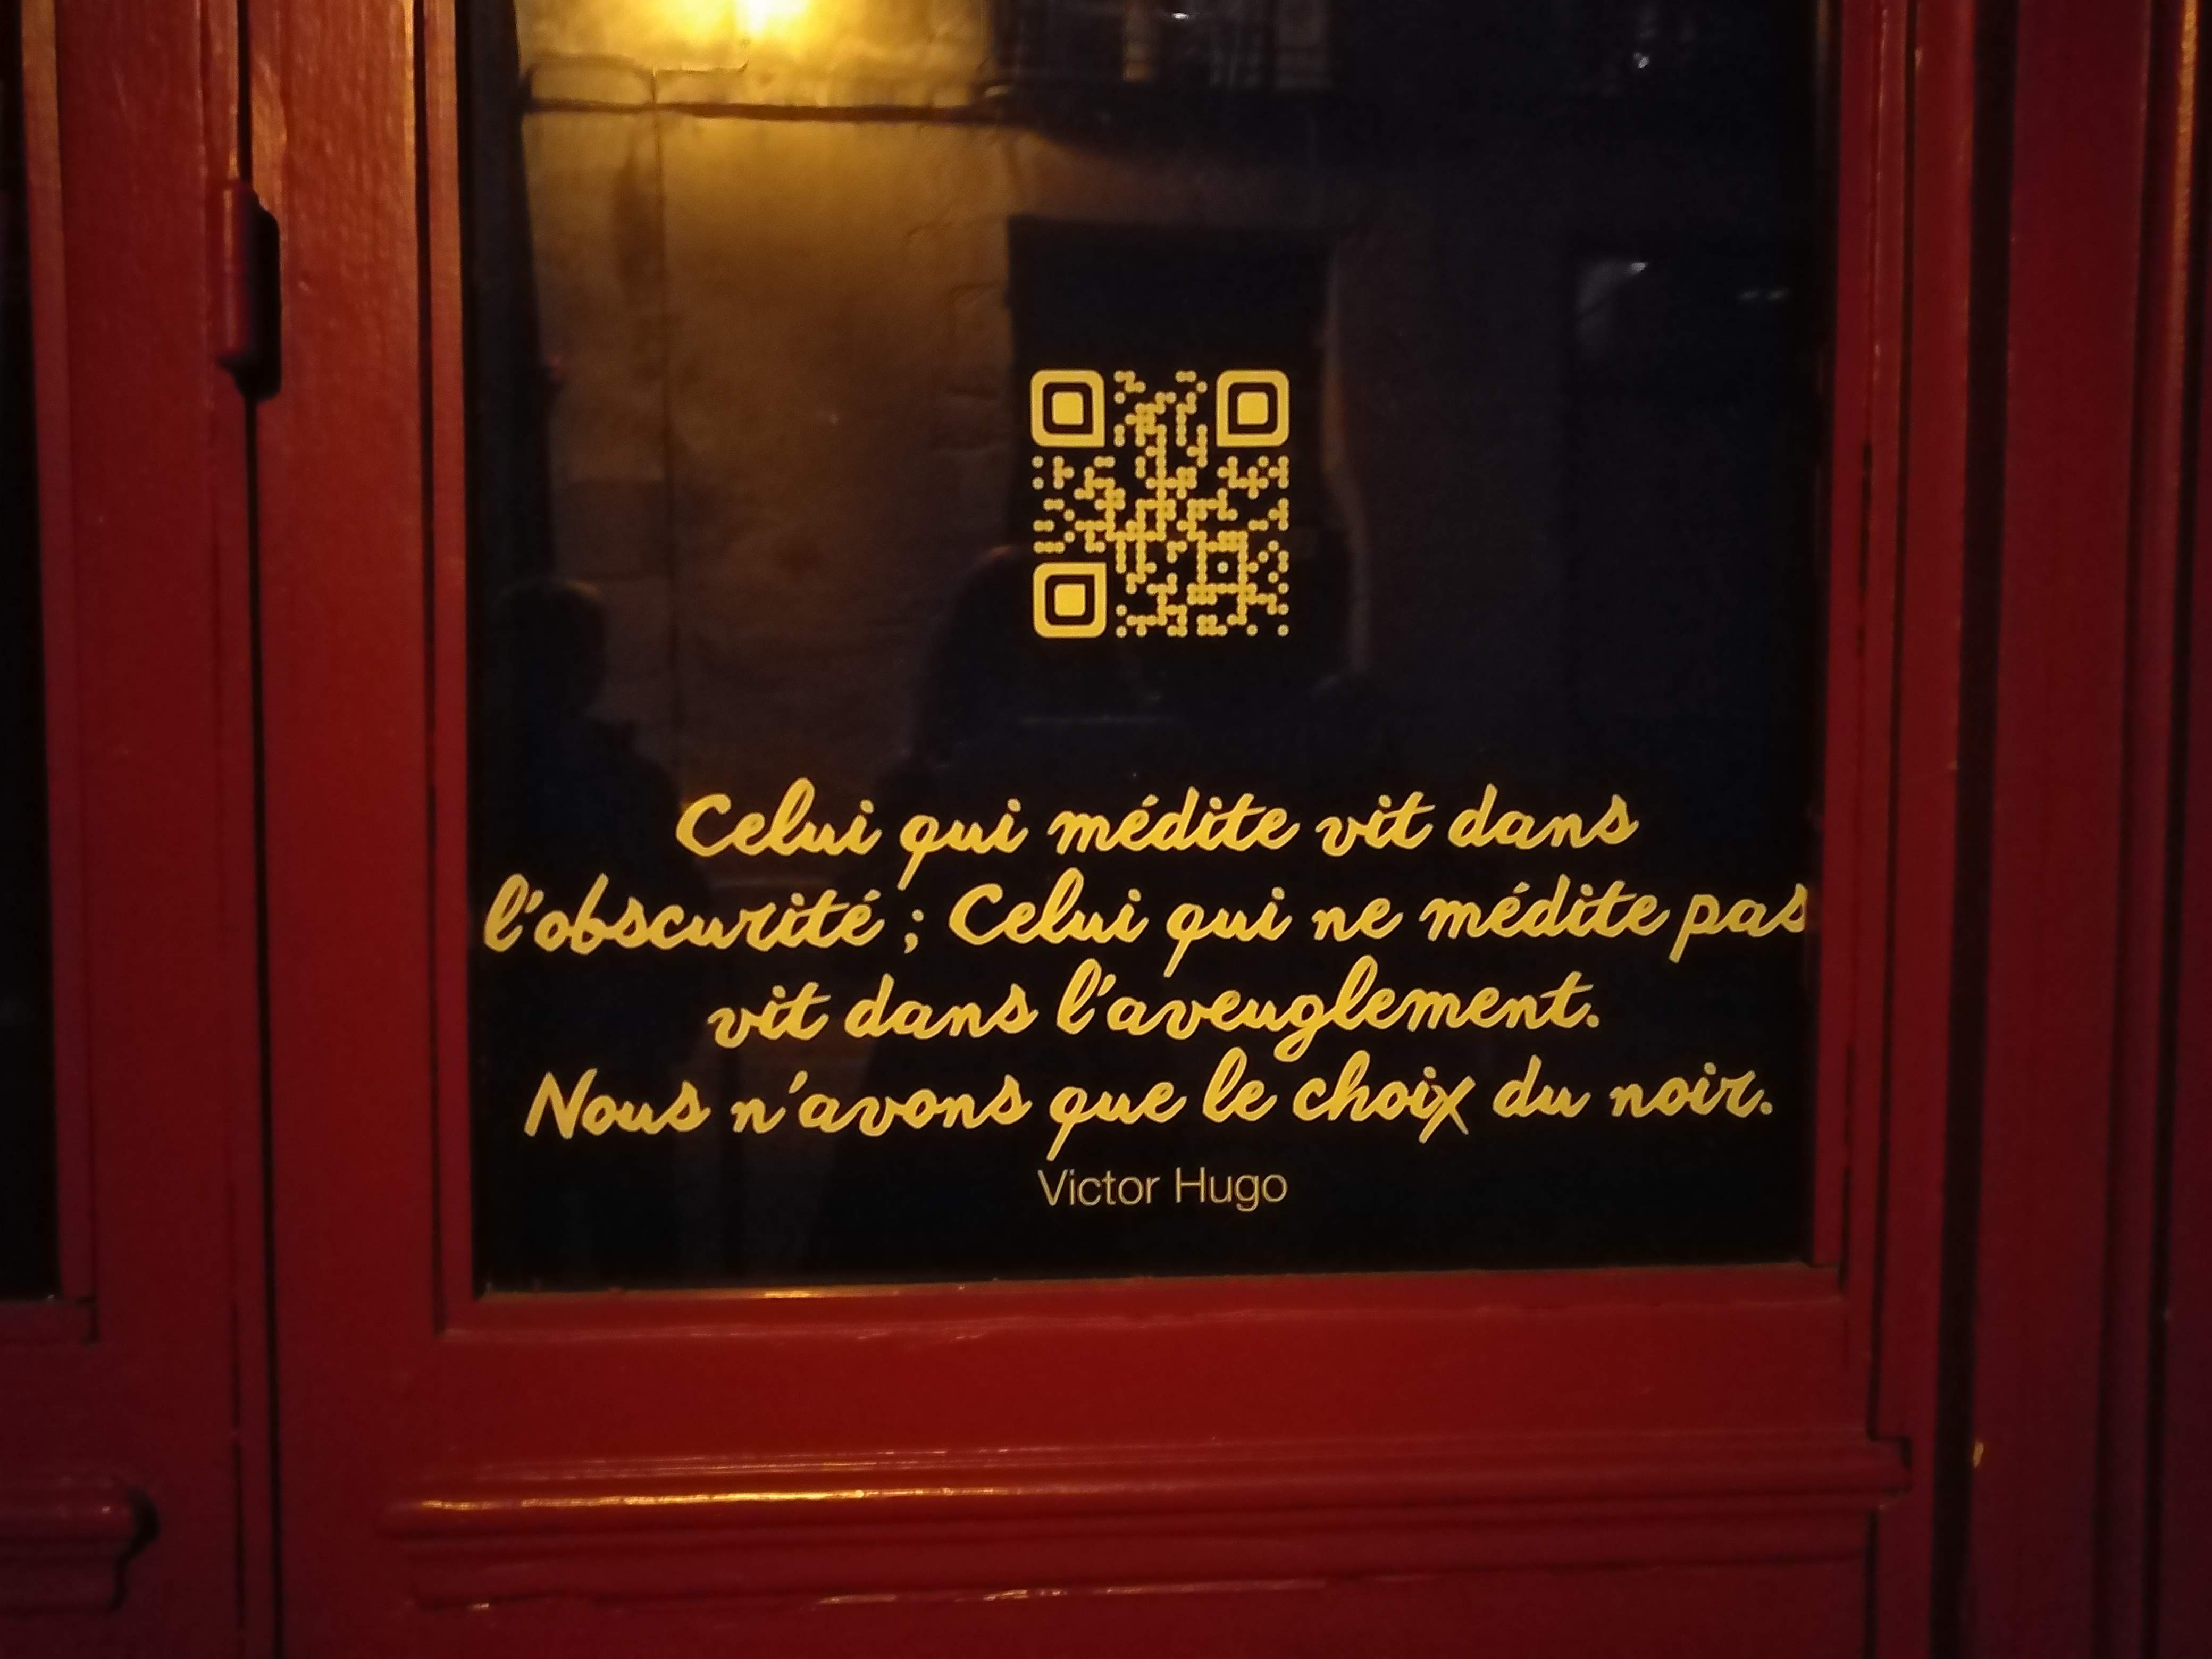 Celui qui médite vit dans
l'obscurité ; Celui qui ne médite pas
vit dans l'aveuglement.
Nous n'avons que le choix du noir.
Victor Hugo